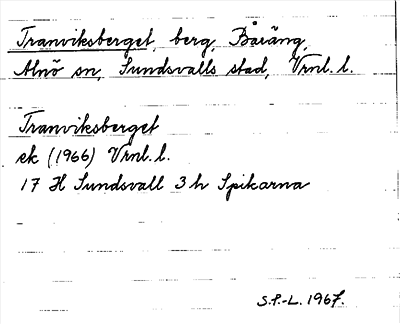 Tranviksberget, berg, Båräng,
Alnö sn, Sundsvalls stad, Vrnl. l.
Tranviksberget
ek (1966) Vrnl. l.
17 H Sundsvall 3 h Spikarna
S.P.-L. 1967.